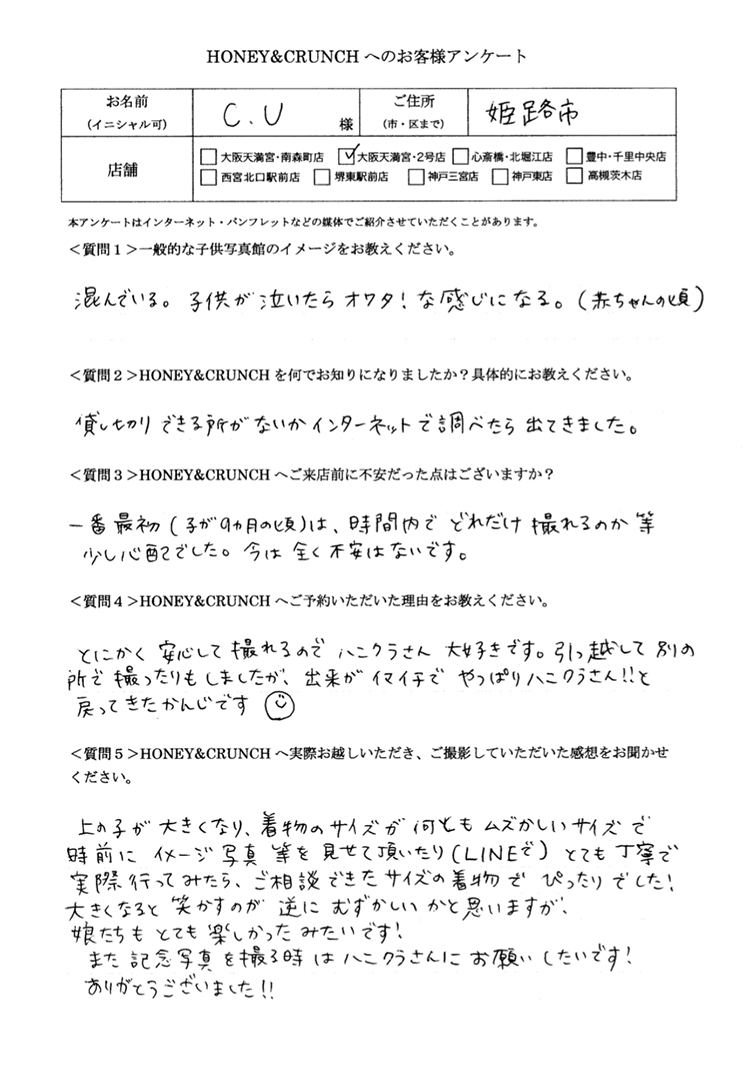 HONEY&CRUNCH へのお客様アンケート
お名前
(イニシャル可)
C.U
様
ご住所
(市・区まで)
姫路市
店舗
□大阪天満宮・南森町店 ☑大阪天満宮・2号店 □心斎橋・北堀江店 □豊中・千里中央店
□西宮北口駅前店 □堺東駅前店 □神戸三宮店 □神戸東店 □高槻茨木店
本アンケートはインターネット・パンフレットなどの媒体でご紹介させていただくことがあります。
＜質問１＞一般的な子供写真館のイメージをお教えください。
混んでいる。子供が泣いたらオワタ!な感じになる。(赤ちゃんの頃)
＜質問２＞HONEY&CRUNCH を何でお知りになりましたか？具体的にお教えください。
貸し切りできる所がないかインターネットで調べたら出てきました。
＜質問３＞HONEY&CRUNCH へご来店前に不安だった点はございますか？
一番最初(子が9ヵ月の頃)は、時間内でどれだけ撮れるのか等
少し心配でした。今は全く不安はないです。
＜質問４＞HONEY&CRUNCH へご予約いただいた理由をお教えください。
とにかく安心して撮れるのでハニクラさん大好きです。引っ越して別の
所で撮ったりもしましたが、出来がイマイチでやっぱりハニクラさん!!と
戻ってきたかんじです
＜質問５＞HONEY&CRUNCH へ実際お越しいただき、ご撮影していただいた感想をお聞かせ
ください。
上の子が大きくなり、着物のサイズが何ともムズかしいサイズで
時前にイメージ写真等を見せて頂いたり(LINEで)とても丁寧で
実際行ってみたら、ご相談できたサイズの着物でぴったりでした!
大きくなると笑かすのが逆にむずかしいかと思いますが、
娘たちもとても楽しかったみたいです!
また記念写真を撮る時はハニクラさんにお願いしたいです!
ありがとうございました!!